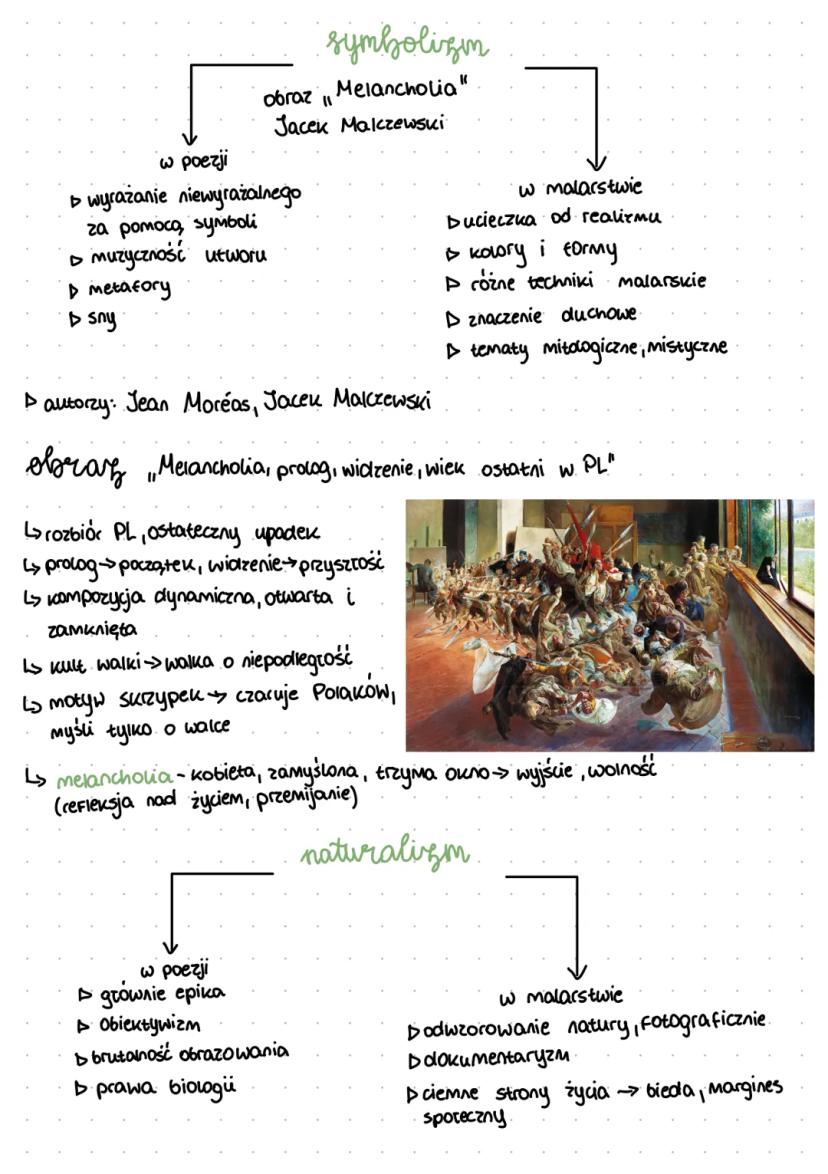 symbolizm
obraz „Melancholia"
Jacek Malczewski
w poezji
▷ wyrażanie niewyrażalnego
za pomocą symboli
▷ muzyczność utworu
▷ metafory
▷ sny
w malarstwie
▷ ucieczka od realizmu
▷ kolory i formy
▷ różne techniki malarskie
▷ znaczenie duchowe
▷ tematy mitologiczne, mistyczne
▷ autorzy: Jean Moréas, Jacek Malczewski
obraz „Melancholia, prolog, widzenie, wiek ostatni w PL"
↳ rozbiór PL, ostateczny upadek
↳ prolog → początek, widzenie → przyszłość
↳ kompozycja dynamiczna, otwarta i
zamknięta
↳ kult walki → walka o niepodległość
↳ motyw skrzypek → czaruje Polaków,
myśli tylko o walce
↳ melancholia - kobieta, zamyślona, trzyma okno → wyjście, wolność
(refleksja nad życiem, przemijanie)
naturalizm
w poezji
▷ głównie epika
▷ obiektywizm
▷ brutalność obrazowania
▷ prawa biologii
w malarstwie
▷ odwzorowanie natury, fotograficznie
▷ dokumentaryzm
▷ ciemne strony życia → bieda, margines
społeczny